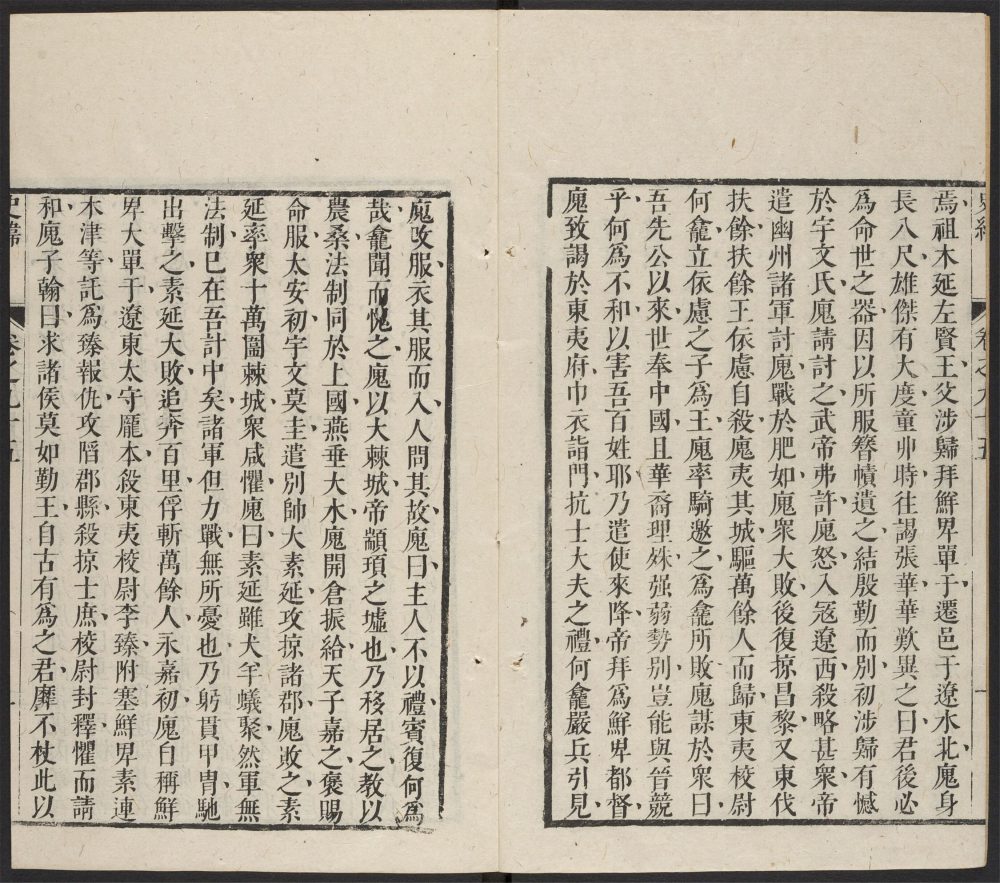 焉祖木延左賢王父涉歸拜鮮卑單于遷邑于遼水北廆身
長八尺雄傑有大度童丱時往謁張華華歎異之曰君後必
為命世之器因以所服簪幘遺之結殷勤而別初涉歸有憾
於宇文氏廆請討之武帝弗許廆怒入冦遼西殺略甚衆帝
遣幽州諸軍討廆戰於肥如廆衆大敗後復掠昌黎又東伐
扶餘扶餘王依慮自殺廆夷其城驅萬餘人而歸東夷校尉
何龕立依慮之子為王廆率騎邀之為龕所敗廆謀於衆曰
吾先公以來世奉中國且華裔理殊强弱勢別豈能與晉競
乎何為不和以害吾百姓耶乃遣使來降帝拜為鮮卑都督
廆致謁於東夷府巾衣詣門抗士大夫之禮何龕嚴兵引見
廆攺服衣其服而入人問其故廆曰主人不以禮賓復何為
哉龕聞而愧之廆以大棘城帝顓頊之墟也乃移居之教以
農桑法制同於上國燕垂大水廆開倉振給天子嘉之褒賜
命服太安初宇文莫圭遣別帥大素延攻掠諸郡廆敗之素
延率衆十萬圖棘城衆咸懼廆曰素延雖犬羊蟻聚然軍無
法制巳在吾計中矣諸軍但力戰無所憂也乃躬貫甲胄馳
出擊之素延大敗追奔百里俘斬萬餘人永嘉初廆自稱鮮
卑大單于遼東太守龐本殺東夷校尉李臻附塞鮮卑素連
木津等託為臻報仇攻䧟郡縣殺掠士庶校尉封釋懼而請
和廆子翰曰求諸侯莫如勤王自古有為之君靡不杖此以
史緯
卷之九十五